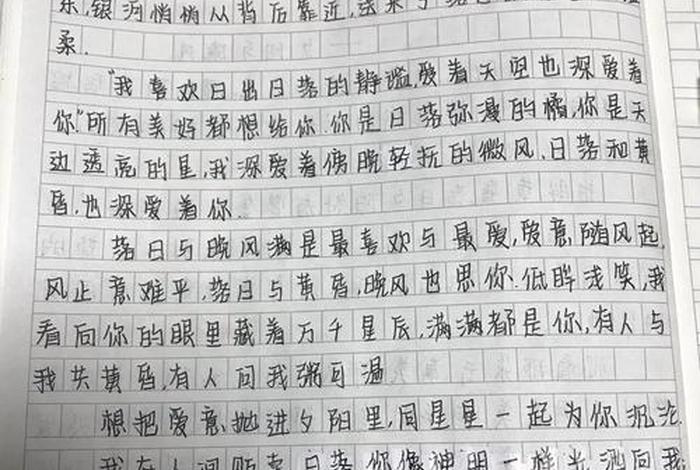 东,银河悄悄从背后靠近,送来了落
柔.
"我喜欢日出日落的静谧,爱着天空也深爱着
你."所有美好都想给你.你是日落弥漫的橘,你是天
边透亮的星,我深爱着傍晚轻抚的微风.日落和黄
昏,也深爱着你.
落日与晚风满是最喜欢与最爱,爱意随风起,
风止意难平,落日与黄昏,晚风也思你.低眸浅笑,我
看向你的眼里藏着万千星辰,满满都是你,有人与
我共黄昏,有人问我粥可温
想把爱意抛进夕阳里,同星星一起为你沉沦
我在人间贩卖日落,你像神明一样光洒向我